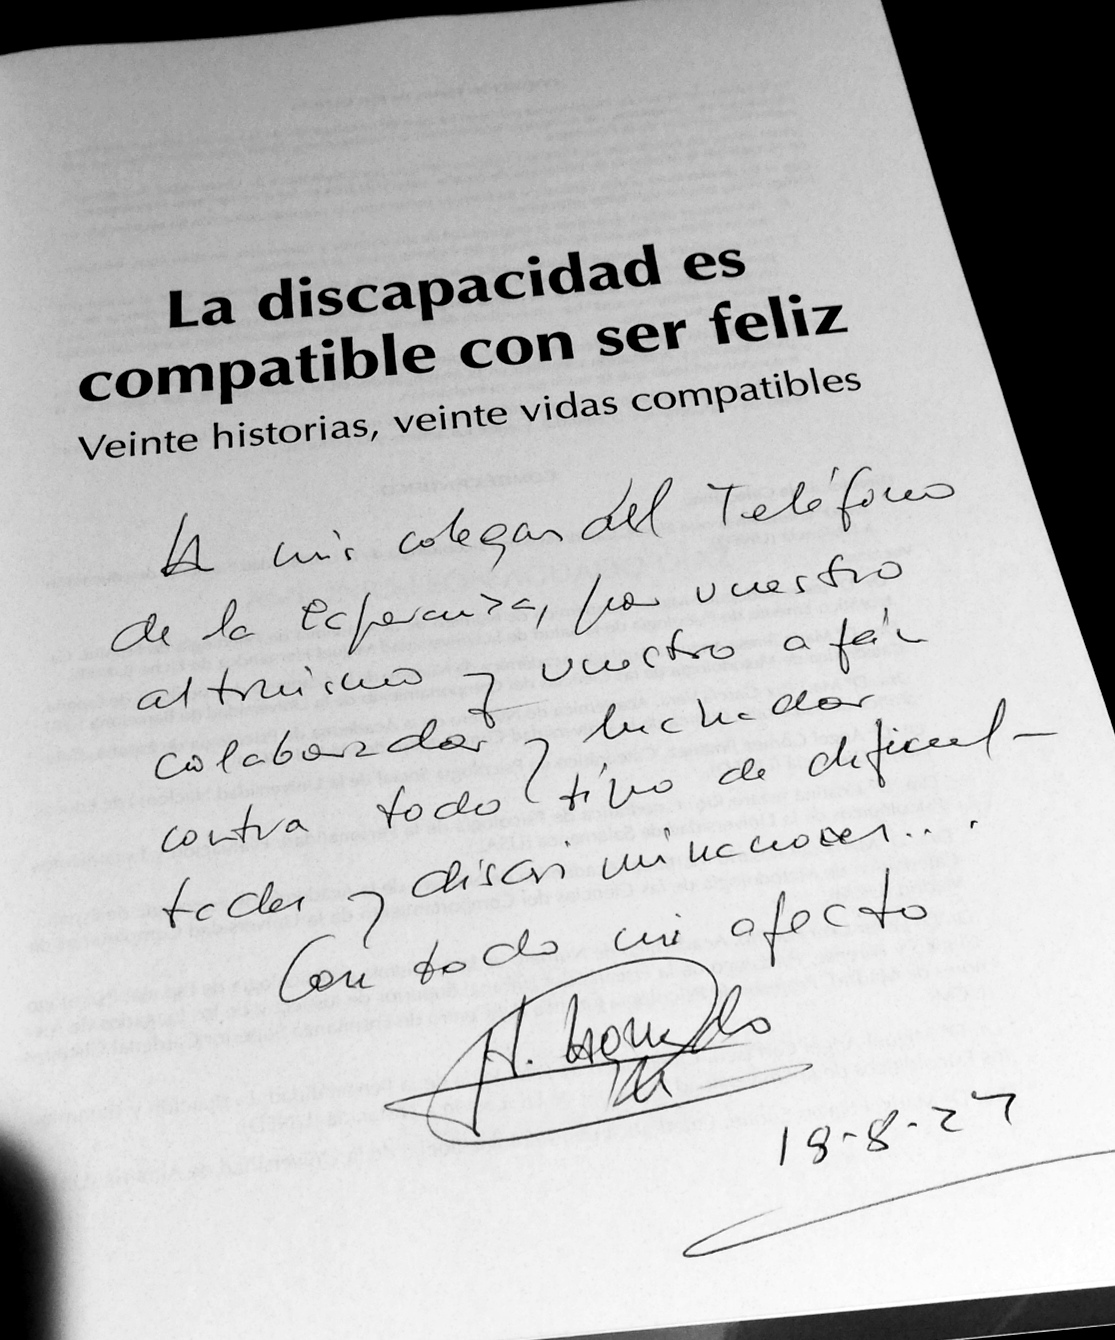 La discapacidad es
compatible con ser feliz
Veinte historias, veinte vidas compatibles
A mis colegas del Teléfono
de la esperanza, por vuestro
altruismo y vuestro afán
colaborador y luchador
contra todo tipo de dificul-
tades y discriminaciones...
Con todo mi afecto
18-8-27